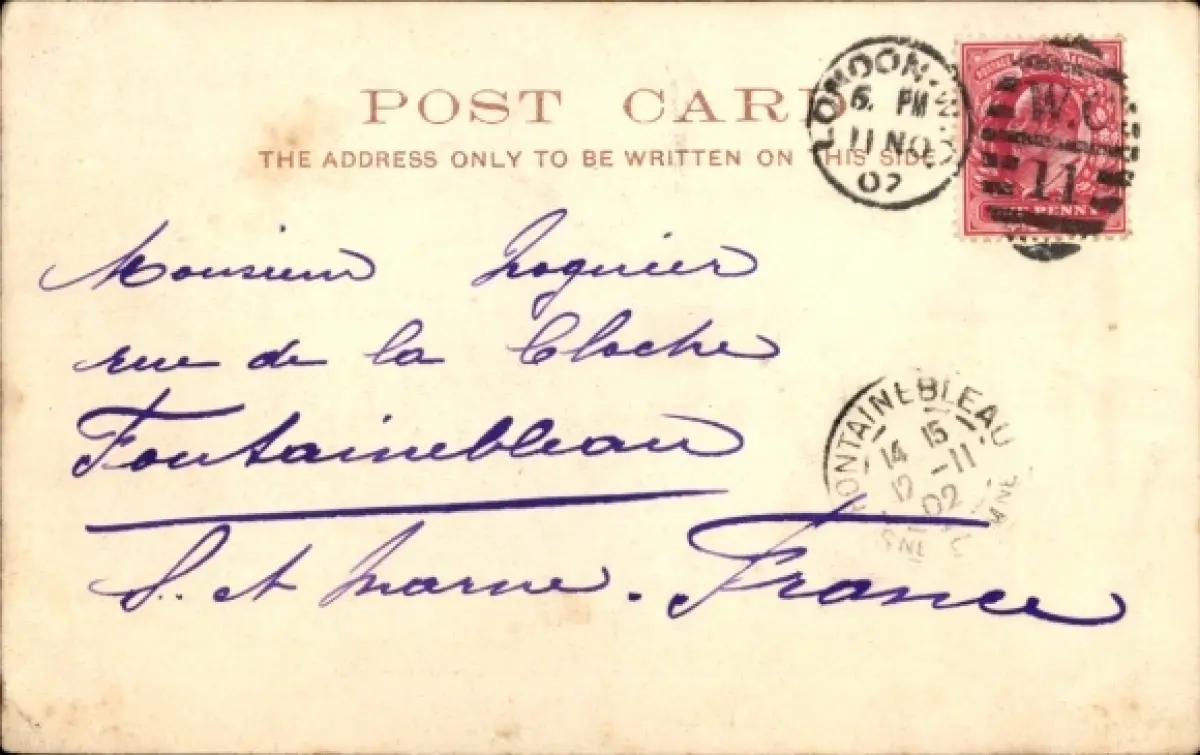 POST CARD
THE ADDRESS ONLY TO BE WRITTEN ON THIS SIDE
LONDON. W.C
6. PM
11 NO
02
POSTAGE
W.C
11
ONE PENNY
Monsieur
rue de la Cloche
Fontainebleau
S. et Marne. France
FONTAINEBLEAU
14 15
12 -11
02